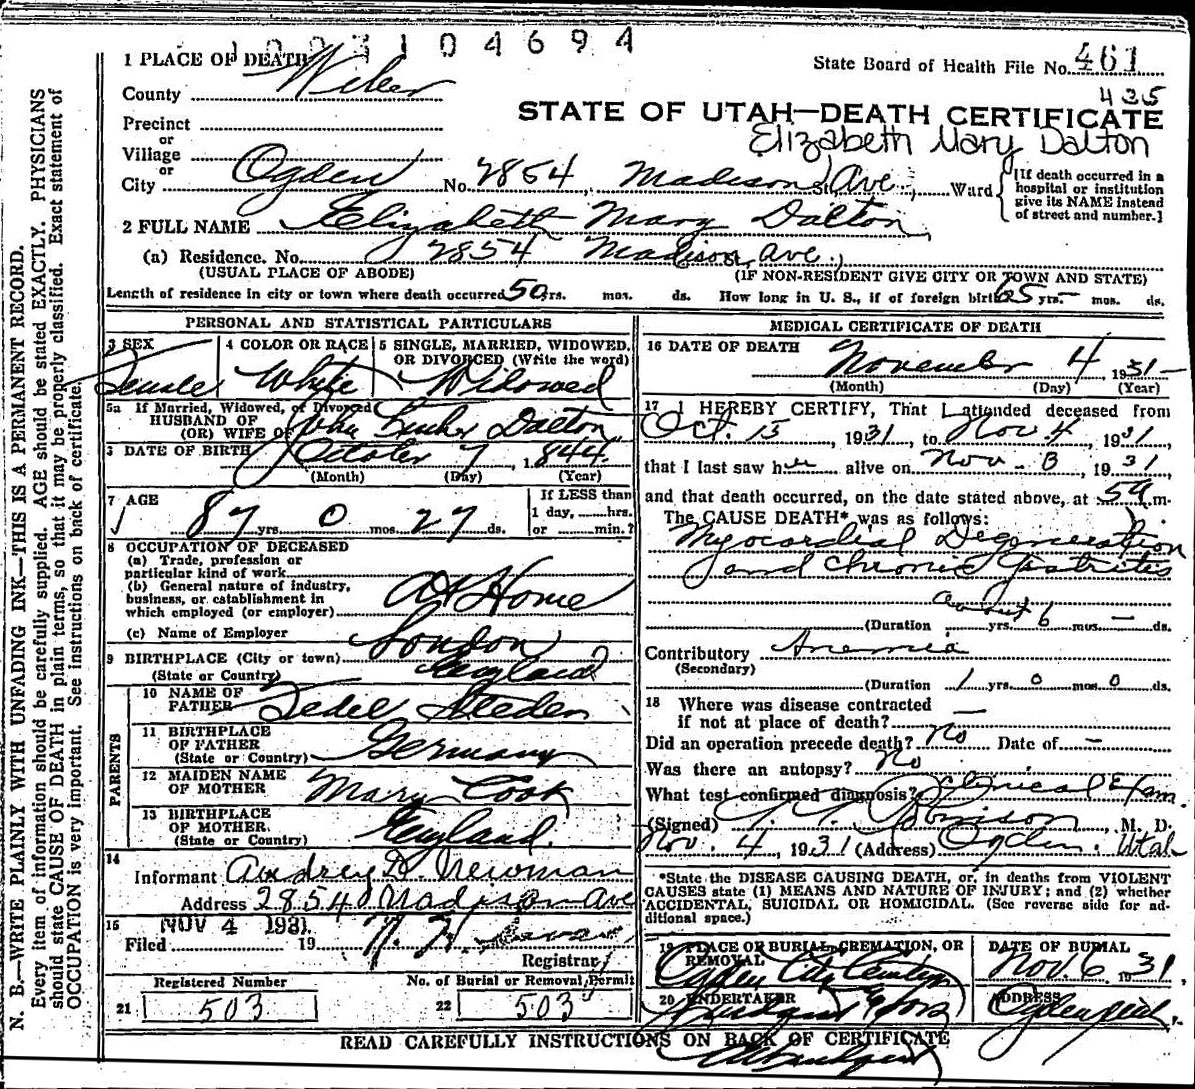 1003104694
1 PLACE OF DEATH
State Board of Health File No. 461
County Weber
435
STATE OF UTAH—DEATH CERTIFICATE
Precinct
Elizabeth Mary Dalton
or
Village
or
City Ogden No. 2854 Madison St. Ave., Ward
[If death occurred in a hospital or institution give its NAME instead of street and number.]
2 FULL NAME Elizabeth Mary Dalton
(a) Residence. No. 2854 Madison Ave.,
(USUAL PLACE OF ABODE) (IF NON-RESIDENT GIVE CITY OR TOWN AND STATE)
Length of residence in city or town where death occurred 50 yrs. mos. ds. How long in U. S., if of foreign birth 65 yrs. — mos. ds.
PERSONAL AND STATISTICAL PARTICULARS
3 SEX Female
4 COLOR OR RACE White
5 SINGLE, MARRIED, WIDOWED, OR DIVORCED (Write the word) Widowed
5a If Married, Widowed, or Divorced
HUSBAND OF
(OR) WIFE OF John Dalton
6 DATE OF BIRTH October 7, 1844
(Month) (Day) (Year)
7 AGE 87 yrs. 0 mos. 27 ds.
If LESS than 1 day, hrs. or min.?
8 OCCUPATION OF DECEASED
(a) Trade, profession or particular kind of work
(b) General nature of industry, business, or establishment in which employed (or employer) At Home
(c) Name of Employer
9 BIRTHPLACE (City or town) London
(State or Country) England
PARENTS
10 NAME OF FATHER Steden
11 BIRTHPLACE OF FATHER (State or Country) Germany
12 MAIDEN NAME OF MOTHER Mary Cook
13 BIRTHPLACE OF MOTHER (State or Country) England.
14
Informant Audrey D. Newman
Address 2854 Madison Ave
15 NOV 4 1931
Filed 19
Registrar
Registered Number
21 503
No. of Burial or Removal Permit
22 503
MEDICAL CERTIFICATE OF DEATH
16 DATE OF DEATH November 4 1931
(Month) (Day) (Year)
17 I HEREBY CERTIFY, That I attended deceased from
Oct. 15, 1931, to Nov. 4 1931,
that I last saw her alive on Nov. 3, 1931
and that death occurred, on the date stated above, at 5 a m.
The CAUSE DEATH* was as follows:
Myocardial Degeneration
and Chronic Gastritis
about
(Duration yrs. 6 mos. — ds.
Contributory Anemia
(Secondary)
(Duration 1 yrs. 0 mos. 0 ds.
18 Where was disease contracted
if not at place of death? —
Did an operation precede death? No Date of —
Was there an autopsy? No
What test confirmed diagnosis? Clinical Exam.
(Signed) M. D.
Nov. 4, 1931 (Address) Ogden, Utah
*State the DISEASE CAUSING DEATH, or, in deaths from VIOLENT
CAUSES state (1) MEANS AND NATURE OF INJURY; and (2) whether
ACCIDENTAL, SUICIDAL OR HOMICIDAL. (See reverse side for additional space.)
19 PLACE OF BURIAL, CREMATION, OR REMOVAL Ogden City Cemetery
DATE OF BURIAL Nov. 6 1931,
20 UNDERTAKER & Sons
ADDRESS Ogden
READ CAREFULLY INSTRUCTIONS ON BACK OF CERTIFICATE
N. B.—WRITE PLAINLY WITH UNFADING INK—THIS IS A PERMANENT RECORD.
Every item of information should be carefully supplied. AGE should be stated EXACTLY. PHYSICIANS
should state CAUSE OF DEATH in plain terms, so that it may be properly classified. Exact statement of
OCCUPATION is very important. See instructions on back of certificate.